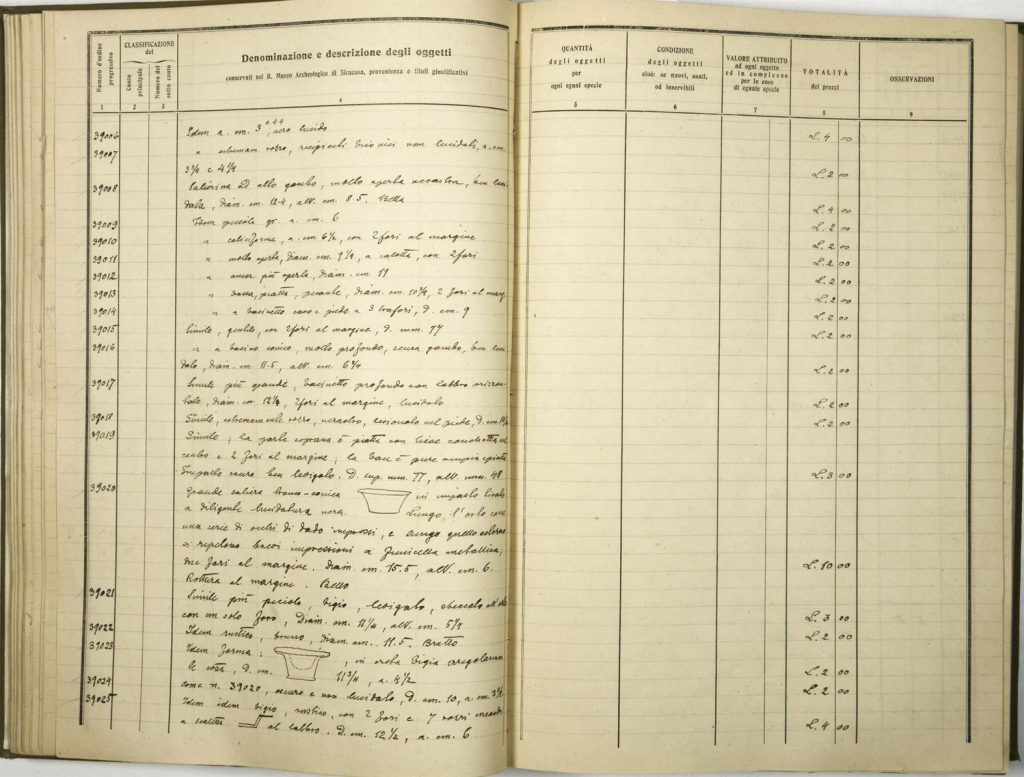 Numero d'ordine progressivo
CLASSIFICAZIONE del
Conto principale
Numero del sotto conto
Denominazione e descrizione degli oggetti
conservati nel R. Museo Archeologico di Siracusa, provenienza e titoli giustificativi
1 2 3 4
39006 Idem a. cm. 3 nero lucido
39007 " rozzo, recipienti non lucidati, a. cm.
3¾ e 4¾
39008 Salierina ad alto gambo, molto aperta nerastra, ben luci
data, diam. cm. 12.4, alt. cm. 8.5. Bella
39009 Idem piccola a. cm. 6
39010 " caliciforme, a. cm. 6½, con 2 fori al margine
39011 " molto aperta, diam. cm. a calotta, con 2 fori
39012 " ancor più aperta, diam. cm. 11
39013 " bassa, piatta, diam. cm. 2 fori al marg.
39014 " a bacinetto e piede a 3 trafori, d. cm. 9
39015 Simile, con 2 fori al margine, d. mm. 77
39016 " a bacino conico, molto profondo, senza gambo, ben luci
dato, diam. cm. 11.5, alt. cm. 6¾
39017 Simile più grande, bacinetto profondo con labbro orizon
tale, diam. cm. 2 fori al margine, lucidato
39018 Simile, estremamente rozzo, nerastro, nel piede, d. cm.
39019 Simile; la parte soprana è piatta con lieve al
centro e 2 fori al margine; la base è pure ampia e piatta
Impasto scuro ben levigato. D. sup. mm. 77, alt. mm. 48
39020 Grande saliera tronco-conica in impasto
a diligente lucidatura nera. Lungo l'orlo corre
una serie di occhi di dado impressi, e lungo quello esterno
si ripetono impressioni a metallica;
due fori al margine. Diam. cm. 15.5, alt. cm. 6.
Rottura al margine. Bello
39021 Simile più piccolo, bigio, levigato, sbeccato all'orlo
con un solo foro, Diam. cm. alt. cm.
39022 Idem rustico, bruno, diam. cm. 11.5. Brutto
39023 Idem forma; in creta bigia irregolarmen
te cotta, d. cm. 11¾, a. 4½
39024 come n. 39020, oscuro e non lucidato, D. cm. 10, a. cm.
39025 Idem idem bigio, rustico, con 2 fori e 7 rozzi meandri
a scaletta al labbro. D. cm. 12½, a. cm. 6
QUANTITÀ
degli oggetti
per
ogni egual specie
5
CONDIZIONE
degli oggetti
cioè: se nuovi, usati,
od inservibili
6
VALORE ATTRIBUITO
ad ogni oggetto
ed in complesso
per le cose
di eguale specie
7
TOTALITÀ
dei prezzi
8
OSSERVAZIONI
9
L. 4 00
L. 2 00
L. 4 00
L. 2 00
L. 2 00
L. 2 00
L. 2 00
L. 2 00
L. 2 00
L. 2 00
L. 2 00
L. 2 00
L. 2 00
L. 3 00
L. 10 00
L. 3 00
L. 2 00
L. 2 00
L. 2 00
L. 4 00